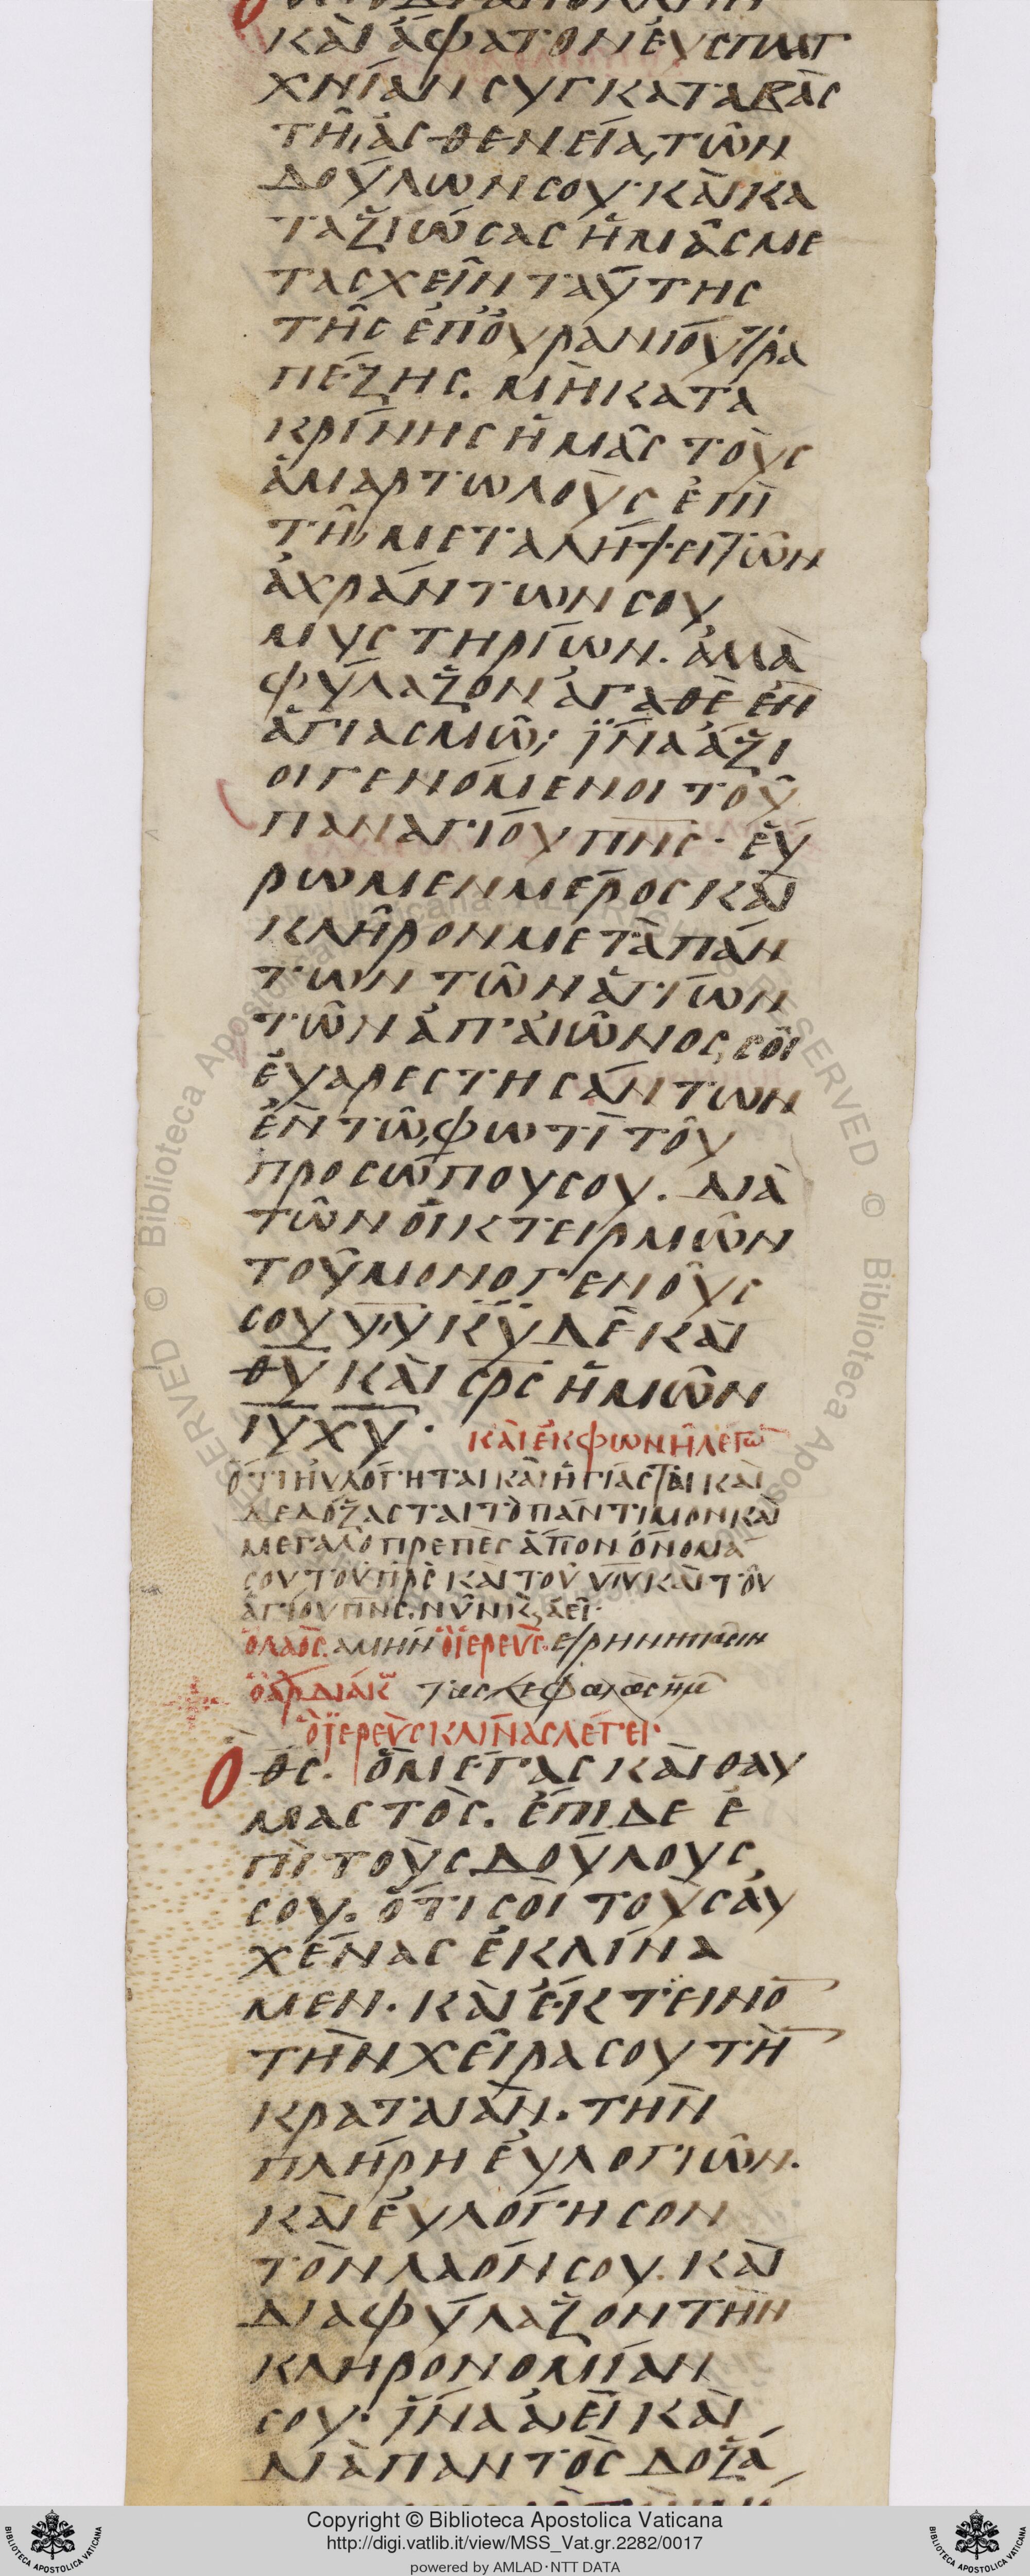 ΚΑῚ ἌΦΑΤΟΝ ἘΥΣΠΛΑΓ
ΧΝΊΑΝ ΣΥΓΚΑΤΑΒᾺΣ
ΤΗ͂Ι ἈΣΘΕΝΕΊΑΙ ΤΩ͂Ν
ΔΟΎΛΩΝ ΣΟΥ· ΚΑῚ ΚΑ
ΤΑΞΙΏΣΑΣ ἩΜΑ͂Σ ΜΕ
ΤΑΣΧΕΙ͂Ν ΤΑΎΤΗΣ
ΤΗ͂Σ ἘΠΟΥΡΑΝΊΟΥ ΤΡΑ
ΠΈΖΗΣ. ΜῊ ΚΑΤΑ
ΚΡΊΝΗΣ ἩΜΑ͂Σ ΤΟῪΣ
ἉΜΑΡΤΩΛΟῪΣ ἘΠῚ
ΤΗ͂Ι ΜΕΤΑΛΉΨΕΙ ΤΩ͂Ν
ἈΧΡΆΝΤΩΝ ΣΟΥ
ΜΥΣΤΗΡΊΩΝ. ἈΛΛᾺ
ΦΎΛΑΞΟΝ ἈΓΑΘῈ ἘΝ
ἉΓΙΑΣΜΩ͂Ι· ἽΝΑ ἌΞΙ
ΟΙ ΓΕΝΌΜΕΝΟΙ ΤΟΥ͂
ΠΑΝΑΓΊΟΥ ΠΝΣ· ΕὝ
ΡΩΜΕΝ ΜΈΡΟΣ ΚΑῚ
ΚΛΗ͂ΡΟΝ ΜΕΤᾺ ΠΆΝ
ΤΩΝ ΤΩ͂Ν ἉΓΊΩΝ
ΤΩ͂Ν ἈΠ' ΑἸΩ͂ΝΟΣ, ΣΟΙ
ἘΥΑΡΕΣΤΗΣΆΝΤΩΝ
ἘΝ ΤΩ͂Ι ΦΩΤῚ ΤΟΥ͂
ΠΡΟΣΏΠΟΥ ΣΟΥ. ΔΙᾺ
ΤΩ͂Ν ΟἸΚΤΕΙΡΜΩ͂Ν
ΤΟΥ͂ ΜΟΝΟΓΕΝΟΥ͂Σ
ΣΟΥ ΥΥ ΚΥ ΔῈ ΚΑῚ
ΘΥ ΚΑῚ ΣΡΣ ἩΜΩ͂Ν
ΙΥ ΧΥ· ΚΑῚ ἘΚΦΩΝΗ͂ ΛΈΓΩ
ὍΤΙ ΗΥΛΌΓΗΤΑΙ ΚΑῚ ἩΓΊΑΣΤΑΙ ΚΑῚ
ΔΕΔΌΞΑΣΤΑΙ ΤῸ ΠΆΝΤΙΜΟΝ ΚΑῚ
ΜΕΓΑΛΟΠΡΕΠῈΣ ἍΓΙΟΝ ὌΝΟΜΑ
ΣΟΥ ΤΟΥ͂ ΠΡΣ ΚΑῚ ΤΟΥ͂ ΥΙΥ ΚΑῚ ΤΟΥ͂
ἉΓΊΟΥ ΠΝΣ. ΝΥ͂Ν Κ, ἈΕῚ·
Ὁ ΛΑῸΣ. ἈΜΉΝ Ὁ ἹΕΡΕῪΣ. ΕἸΡΗΝΗ ΠΑ͂ΣΙΝ
Ὁ ΑΡΔΙΑΚ ΤΑΣ ΚΕΦΑΛᾺΣ ἩΜ
Ὁ ἹΕΡΕῪΣ ΚΛΊΝΑΣ ΛΈΓΕΙ·
Ὁ ΘΣ. Ὁ ΜΈΓΑΣ ΚΑῚ ΘΑΥ
ΜΑΣΤῸΣ. ἜΠΙΔΕ Ἐ
ΠῚ ΤΟῪΣ ΔΟΎΛΟΥΣ
ΣΟΥ. ὍΤΙ ΣΟῚ ΤΟῪΣ ἈΥ
ΧΈΝΑΣ ἘΚΛΊΝΑ
ΜΕΝ. ΚΑῚ ἜΚΤΕΙΝΟ
ΤῊΝ ΧΕΙ͂ΡΑ ΣΟΥ ΤῊ
ΚΡΑΤΑΙᾺΝ. ΤῊΝ
ΠΛΉΡΗ ἘΥΛΟΓΙΩ͂Ν.
ΚΑῚ ἘΥΛΌΓΗΣΟΝ
ΤῸΝ ΛΑΌΝ ΣΟΥ. ΚΑῚ
ΔΙΑΦΎΛΑΞΟΝ ΤῊΝ
ΚΛΗΡΟΝΟΜΊΑΝ
ΣΟΥ· ἽΝΑ ἈΕῚ ΚΑῚ
ΔΙᾺ ΠΑΝΤῸΣ ΔΟΞΆ
Copyright © Biblioteca Apostolica Vaticana
http://digi.vatlib.it/view/MSS_Vat.gr.2282/0017
powered by AMLAD·NTT DATA